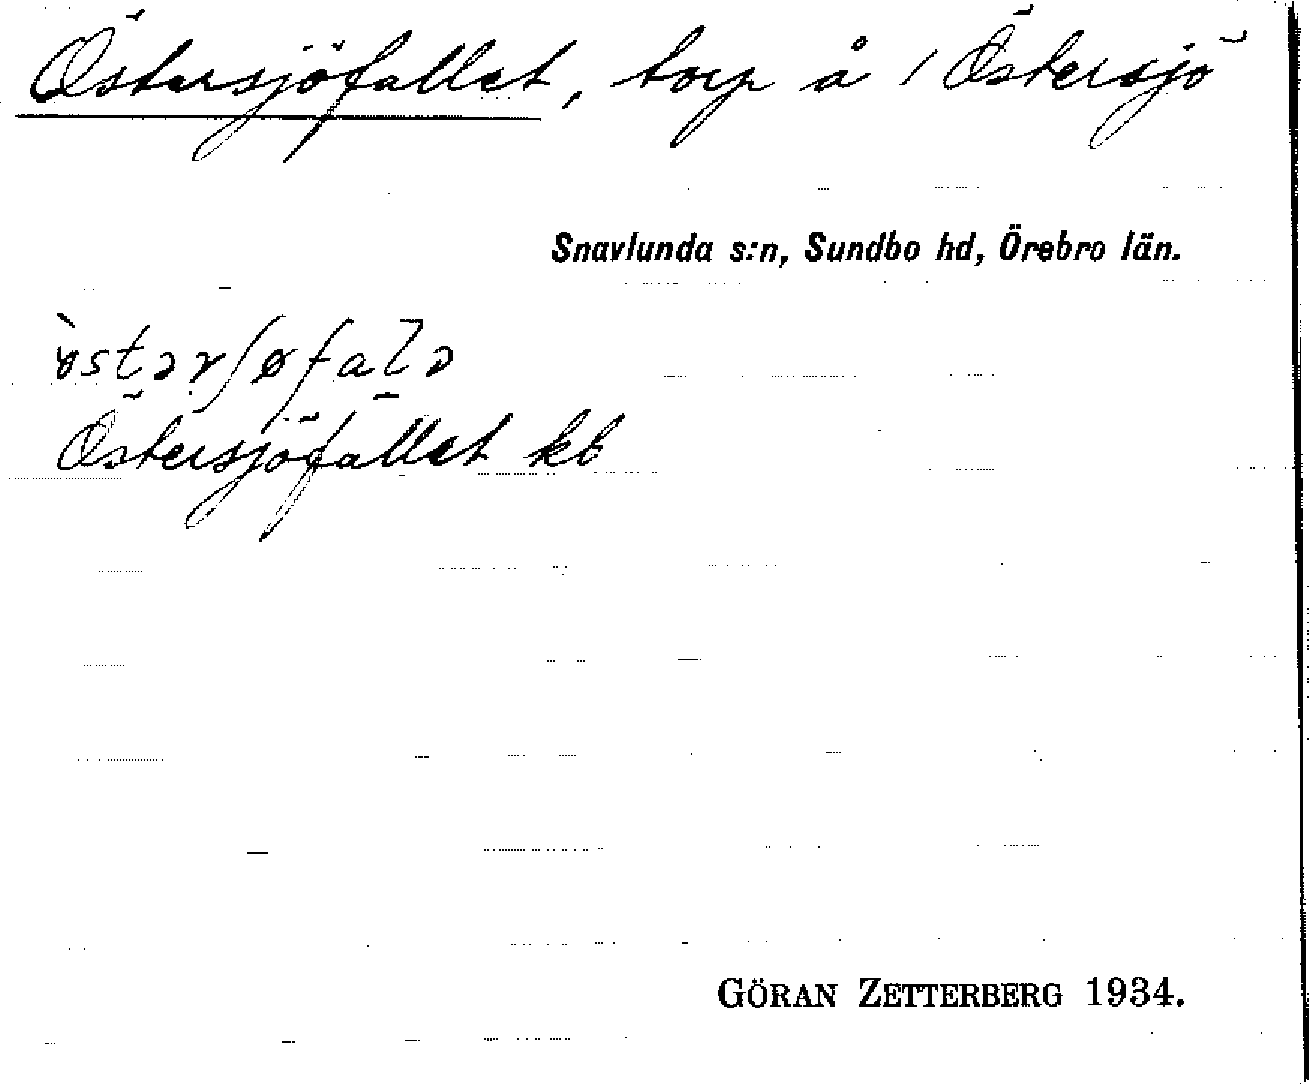 Östersjöfallet, torp å / Östersjö
Snavlunda s:n, Sundbo hd, Örebro län.
Östersjöfallet kt
GÖRAN ZETTERBERG 1934.